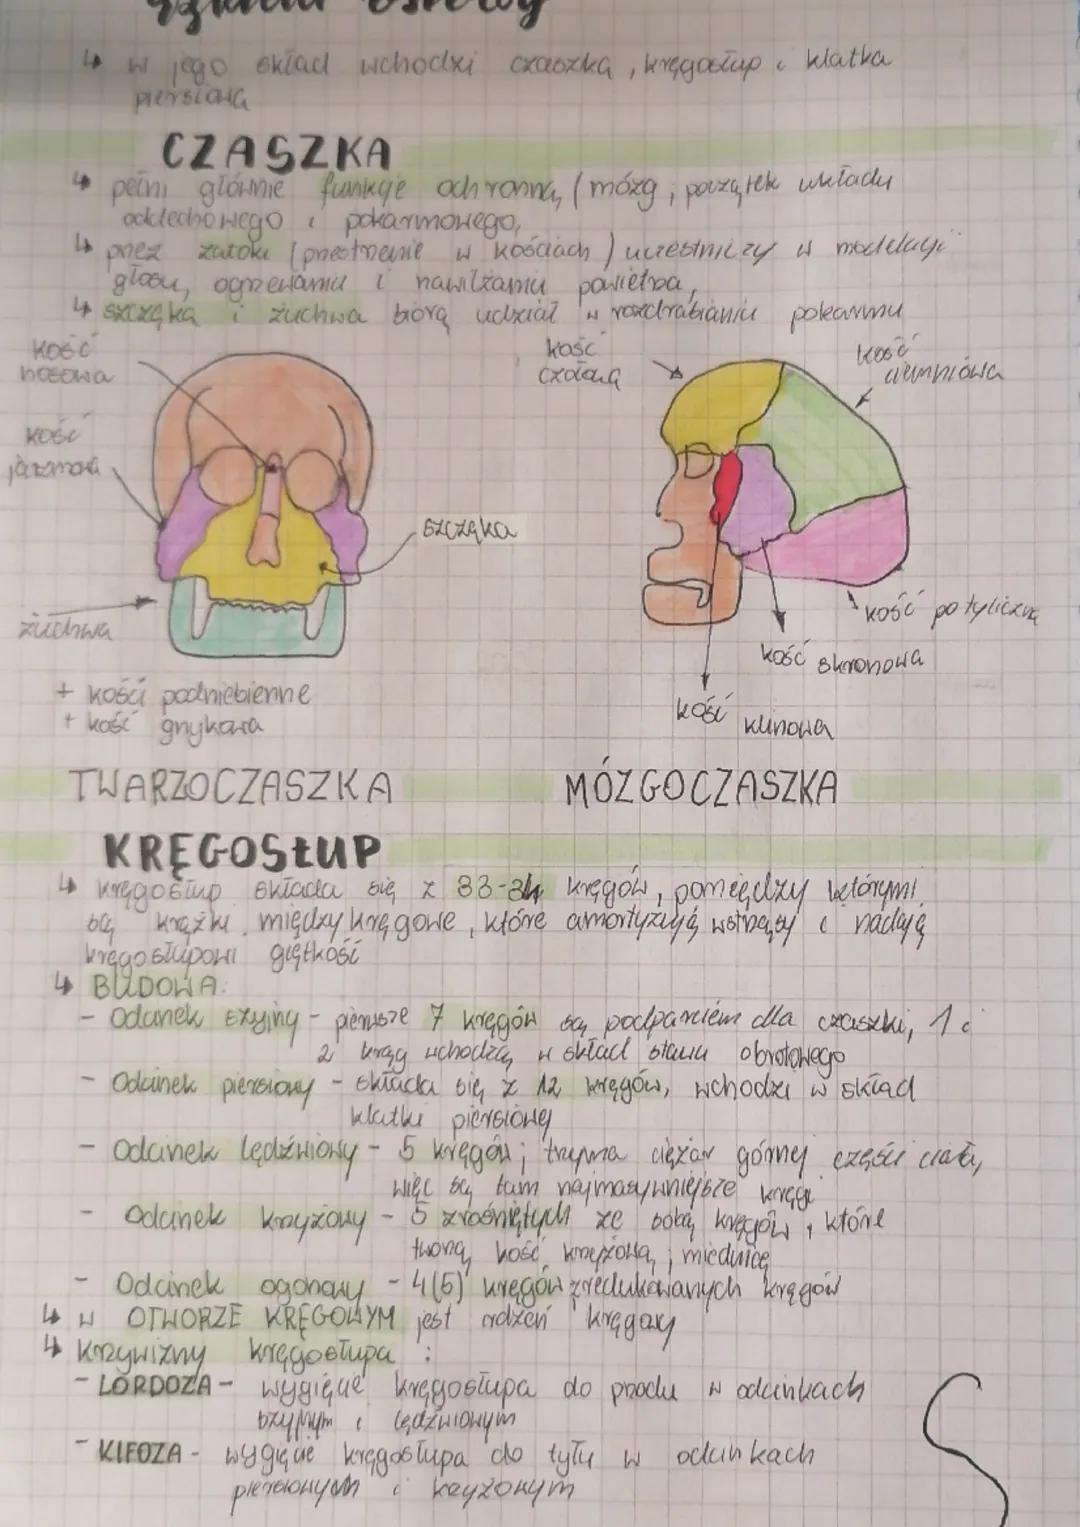 szkielet osiowy
↳ w jego skład wchodzi czaszka, kręgosłup i klatka
piersiowa
CZASZKA
↳ pełni głównie funkcje ochronną (mózg, początek układu
oddechowego i pokarmowego,
↳ przez zatoki (przestrzenie w kościach) uczestniczy w modelacji
głosu, ogrzewaniu i nawilżaniu powietrza,
↳ szczęka i żuchwa biorą udział w rozdrabianiu pokarmu
kość
nosowa
kość
jarzmowa
szczęka
żuchwa
+ kości podniebienne
+ kość gnykowa
TWARZOCZASZKA
kość
czołowa
kość
ciemniowa
kość potyliczna
kość skroniowa
kość klinowa
MÓZGOCZASZKA
KRĘGOSŁUP
↳ kręgosłup składa się z 33-34 kręgów, pomiędzy którymi
są krążki międzykręgowe, które amortyzują wstrząsy i nadają
kręgosłupowi giętkość
↳ BUDOWA:
- Odcinek szyjny - pierwsze 7 kręgów są podparciem dla czaszki, 1 i
2 kręg wchodzą w skład stawu obrotowego
- Odcinek piersiowy - składa się z 12 kręgów, wchodzi w skład
klatki piersiowej
- Odcinek lędźwiowy - 5 kręgów; trzyma ciężar górnej części ciała,
więc są tam najmasywniejsze kręgi
- Odcinek krzyżowy - 5 zrośniętych ze sobą kręgów, które
tworzą kość krzyżową; miednicę
- Odcinek ogonowy - 4(5) kręgów zredukowanych kręgów
↳ W OTWORZE KRĘGOWYM jest rdzeń kręgowy
↳ Krzywizny kręgosłupa :
- LORDOZA - wygięcie kręgosłupa do przodu w odcinkach
szyjnym i lędźwiowym
- KIFOZA - wygięcie kręgosłupa do tyłu w odcinkach
piersiowym i krzyżowym